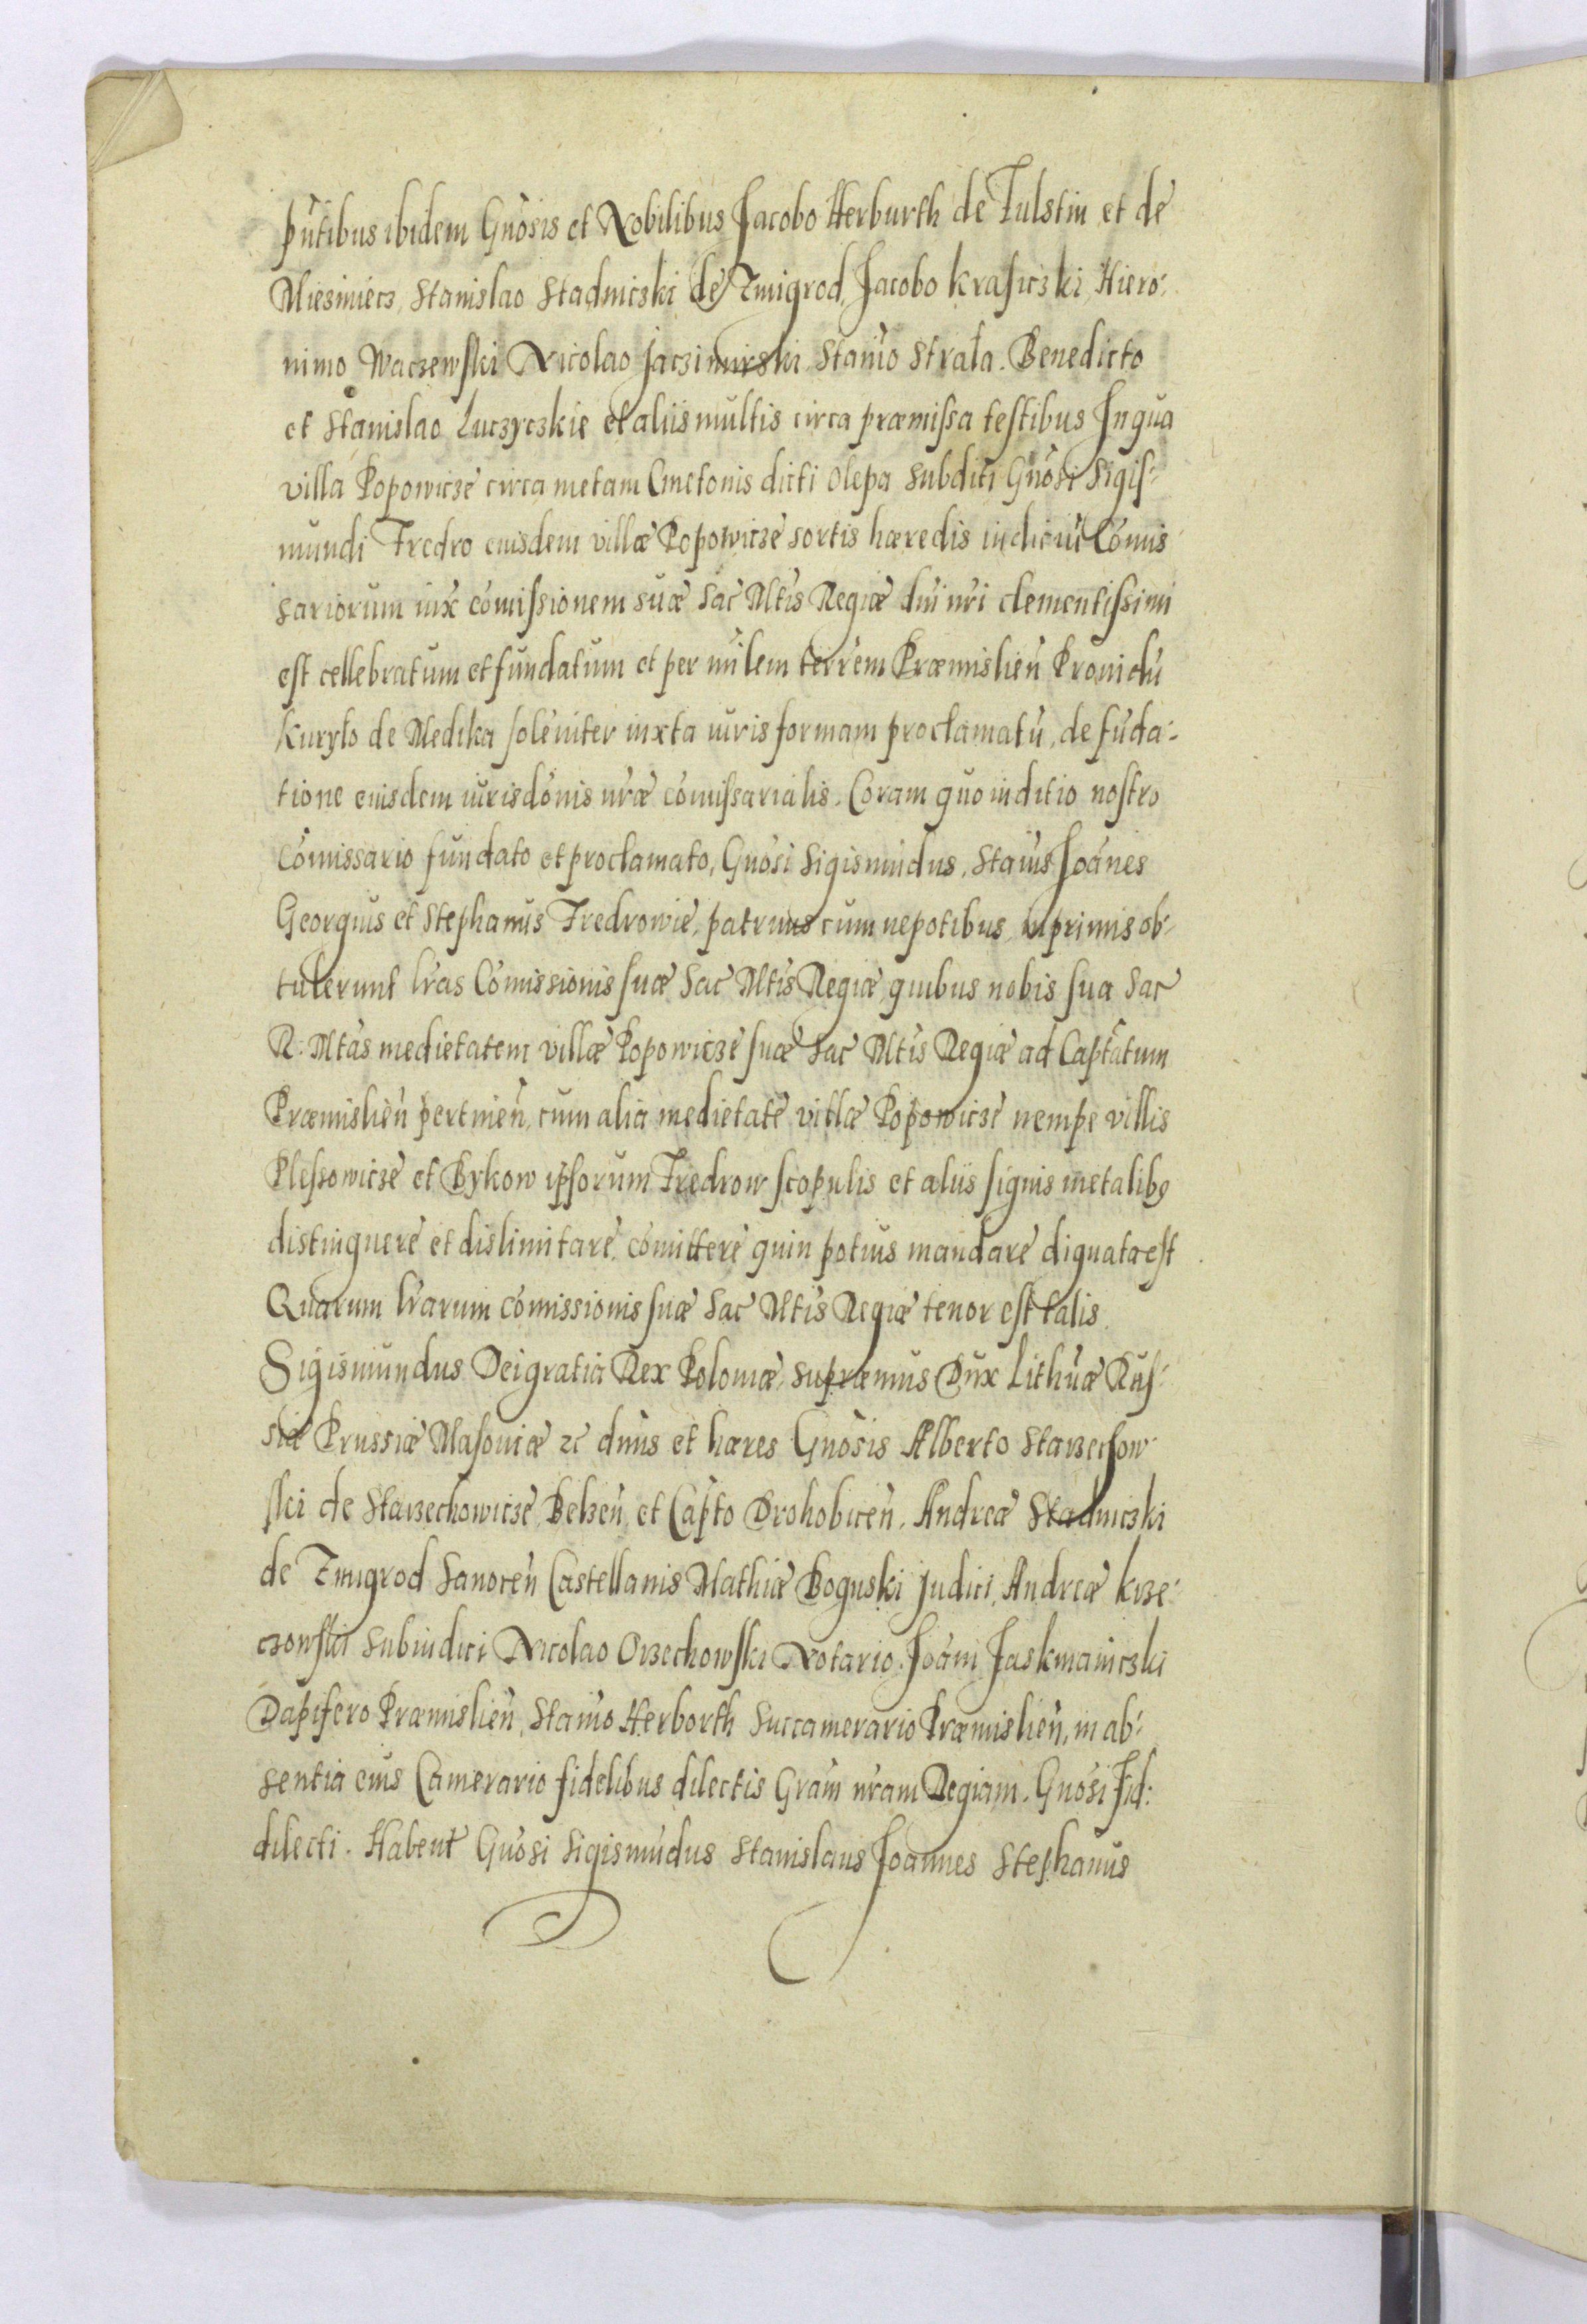 pñtibus ibidem Gnosis et Nobilibus Jacobo Herburth de Fulstin et de
Miesiniecz, Stanislao Stadniczki de Zmigrod, Jacobo Krasiczki, Hiero:
nimo Waczewski Nicolao Jaczimirski, Stanio Strala. Benedicto
et Stanislao Luczyczkie et aliis multis circa præmissa testibus In qua
villa Popowicze circa metam Cmetonis dicti Olepa subditi Gnosi Sigis:
mundi Fredro eiusdem villæ Popowicze sortis hæredis iudiciũ Cõmis
sariorum iux cõmissionem suæ Sac Mtis Regiæ dni nri clementissimi
est cellebratum et fundatum et per milem terrem Præmislien Prouidũ
Kuryło de Medika solẽniter iuxta iuris formam proclamatũ, de fũda:
tione eiusdem iurisdonis nræ cõmissarialis. Coram quo iuditio nostro
Cõmissario fundato et proclamato, Gnosi Sigismũdus, Stanũs Joãnes
Georgius et Stephanus Fredrowie, patruus cum nepotibus, inprimis ob:
tulerunt lras Cõmissionis suæ Sac Mtis Regiæ, quibus nobis sua Sac
R: Mtas medietatem villæ Popowicze suæ Sac Mtis Regiæ ad Captatum
Præmislien pertinen, cum alia medietate villæ Popowicze nempe villis
Plessowicze et Bykow ipsorum Fredrow scopulis et aliis signis metalibꝯ
distinguere et dislimitare, cõmittere quin potius mandare dignata est
Quarum lrarum cõmissionis suæ Sac Mtis Regiæ tenor est talis.
Sigismundus Dei gratia Rex Poloniæ, Supræmus Dux Lithuæ Rus:
siæ Prussiæ Masoniæ ꝛc dnus et hæres Gnosis Alberto Starzechow
ski de Starzechowicze, Belzen, et Capto Drohobicen, Andreæ Stadniczki
de Zmigrod Sanocen Castellanis Mathiæ Boguski Judici, Andreæ Krze:
czowski Subiudici Nicolao Orzechowski Notario, Joãni Jaskmaniczki
Dapifero Præmislien, Stanio Herborth Succamerario Præmislien, in ab:
sentia eius Camerario fidelibus dilectis Gram nram Regiam. Gnosi Fid:
dilecti. Habent Gnosi Sigismũdus Stanislaus Joannes Stephanus